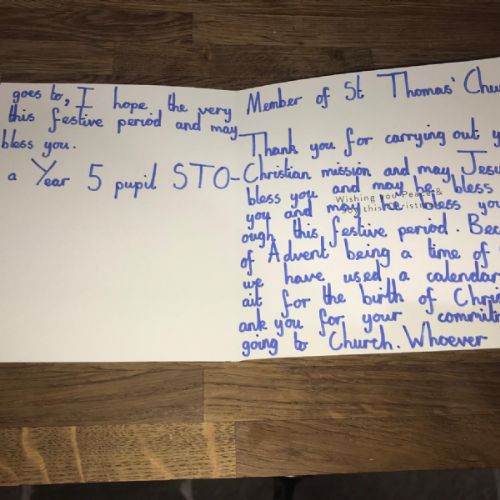 goes to, I hope the very
this festive period and may
bless you.
a Year 5 pupil STO-
Member of St Thomas' Chu
Thank you for carrying out y
Christian mission and may Jesu
bless you and may he bless
Wishing you Peace &
you and may he bless you
ough this festive period. Bec
of Advent being a time of
we have used a calendar
ait for the birth of Chris
ank you for your commit
going to Church. Whoever